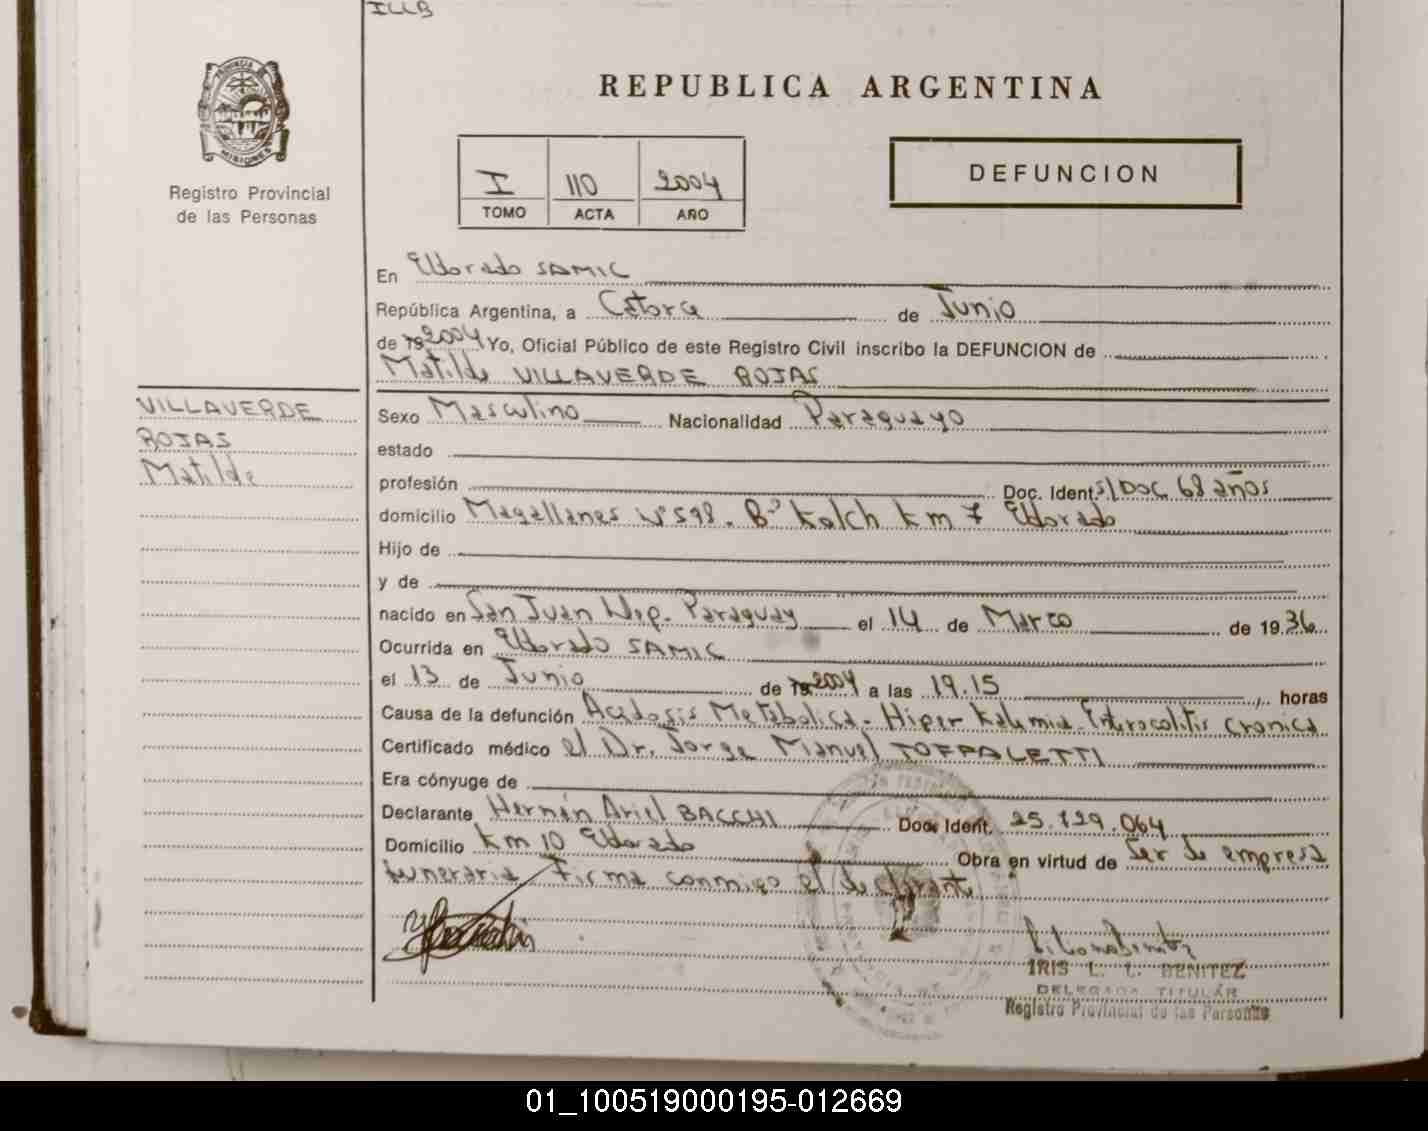 ILLB
PROVINCIA DE
MISIONES
Registro Provincial
de las Personas
REPUBLICA ARGENTINA
I 110 2004
TOMO ACTA AÑO
DEFUNCION
En Eldorado SAMIC
República Argentina, a Catorce de Junio
de 19 2004 Yo, Oficial Público de este Registro Civil inscribo la DEFUNCION de
Matilde VILLAVERDE ROJAS
VILLAVERDE
ROJAS
Matilde
Sexo Masculino Nacionalidad Paraguayo
estado
profesión Doc. Ident. S/Doc. 68 años
domicilio Magallanes Nº 598. Bº Kolch Km 7 Eldorado
Hijo de
y de
nacido en San Juan Nep. Paraguay el 14 de Marzo de 1936
Ocurrida en Eldorado SAMIC
el 13 de Junio de 19 2004 a las 19.15, horas
Causa de la defunción Acidosis Metabolica - Hiper Kalemia. Enterocolitis cronica
Certificado médico el Dr. Jorge Manuel TOFFALETTI
Era cónyuge de
Declarante Hernán Ariel BACCHI Doc. Ident. 25.129.064
Domicilio Km 10 Eldorado Obra en virtud de Ser de empresa
funeraria. Firma conmigo el declarante
IRIS L. L. BENITEZ
DELEGADA TITULAR
Registro Provincial de las Personas
01_100519000195-012669